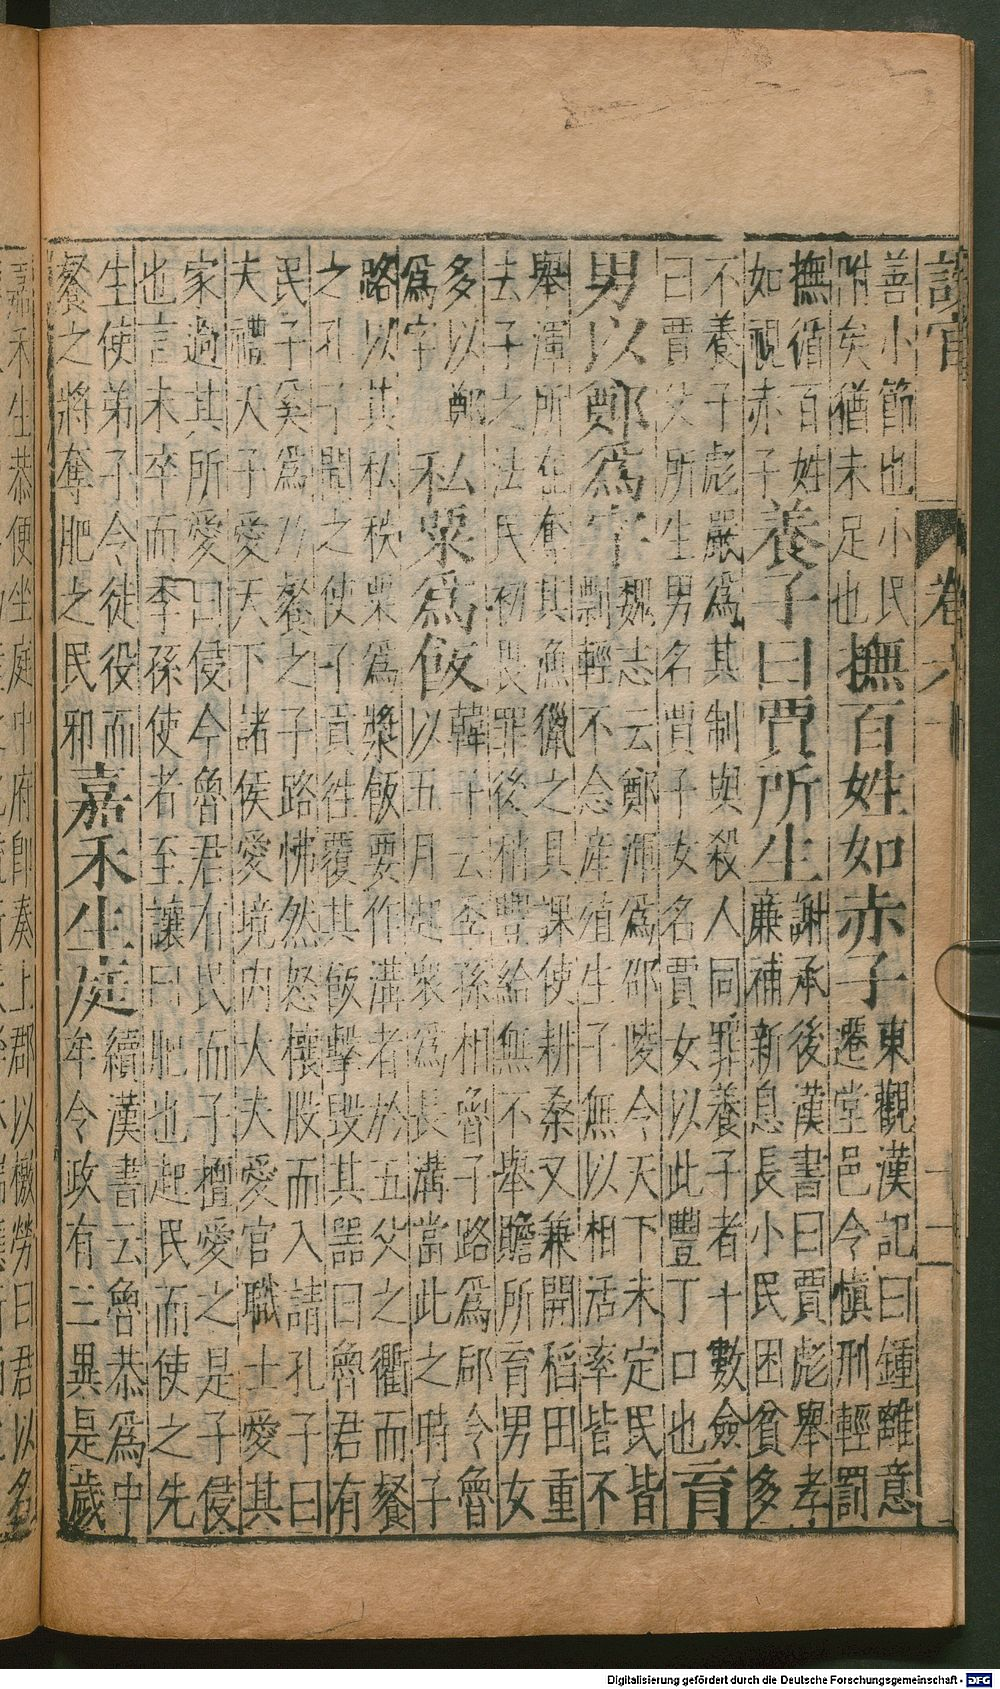 設官　卷六十　二
善小節也小民
附矣猶未足也
撫百姓如赤子
東觀漢記曰鍾離意
遷堂邑令慎刑輕罰
撫循百姓
如視赤子
養子曰賈所生
謝承後漢書曰賈彪舉孝
廉補新息長小民困貧多
不養子彪嚴爲其制與殺人同罪養子者十數僉
曰賈父所生男名賈子女名賈女以此豐丁口也
育
男以鄭爲字
魏志云鄭渾爲邵陵令天下未定民皆
剽輕不念産殖生子無以相活率皆不
舉渾所在奪其漁獵之具課使耕桑又兼開稻田重
去子之法民初畏罪後稍豐給無不舉贍所育男女
多以鄭
爲字
私粟爲飯
韓子云季孫相魯子路爲郈令魯
以五月起衆爲長溝當此之時子
路以其私秩粟爲漿飯要作溝者於五父之衢而餐
之孔子聞之使子貢往覆其飯擊毀其器曰魯君有
民子奚爲乃餐之子路怫然怒攘股而入請孔子曰
夫禮天子愛天下諸侯愛境内大夫愛官職士愛其
家過其所愛曰侵今魯君有民而子擅愛之是子侵
也言未卒而季孫使者至讓曰肥也起民而使之先
生使弟子令徒役而
餐之將奪肥之民邪
嘉禾生庭
續漢書云魯恭爲中
牟令政有三異是歲
嘉禾生恭便坐庭中府即奏上郡以檄勞曰君以名
Digitalisierung gefördert durch die Deutsche Forschungsgemeinschaft - DFG